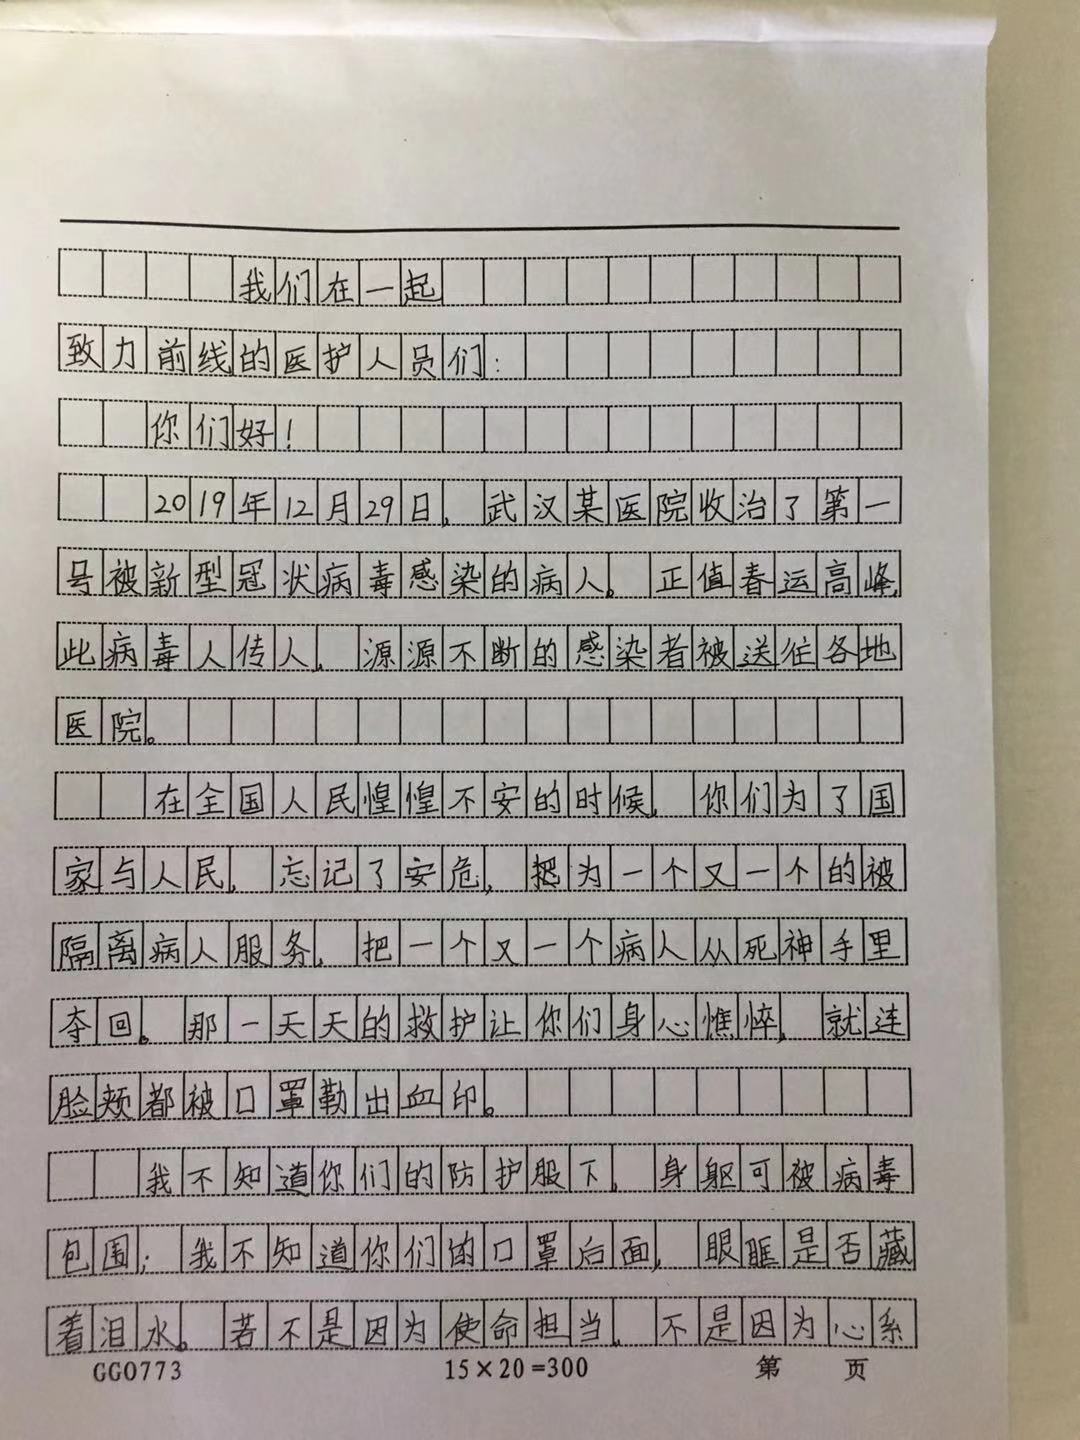 我们在一起
致力前线的医护人员们：
你们好！
2019年12月29日，武汉某医院收治了第一
号被新型冠状病毒感染的病人。正值春运高峰，
此病毒人传人，源源不断的感染者被送往各地
医院。
在全国人民惶惶不安的时候，你们为了国
家与人民，忘记了安危，把为一个又一个的被
隔离病人服务，把一个又一个病人从死神手里
夺回。那一天天的救护让你们身心憔悴，就连
脸颊都被口罩勒出血印。
我不知道你们的防护服下，身躯可被病毒
包围；我不知道你们的口罩后面，眼眶是否藏
着泪水。若不是因为使命担当，不是因为心系
GG0773 15×20=300 第 页